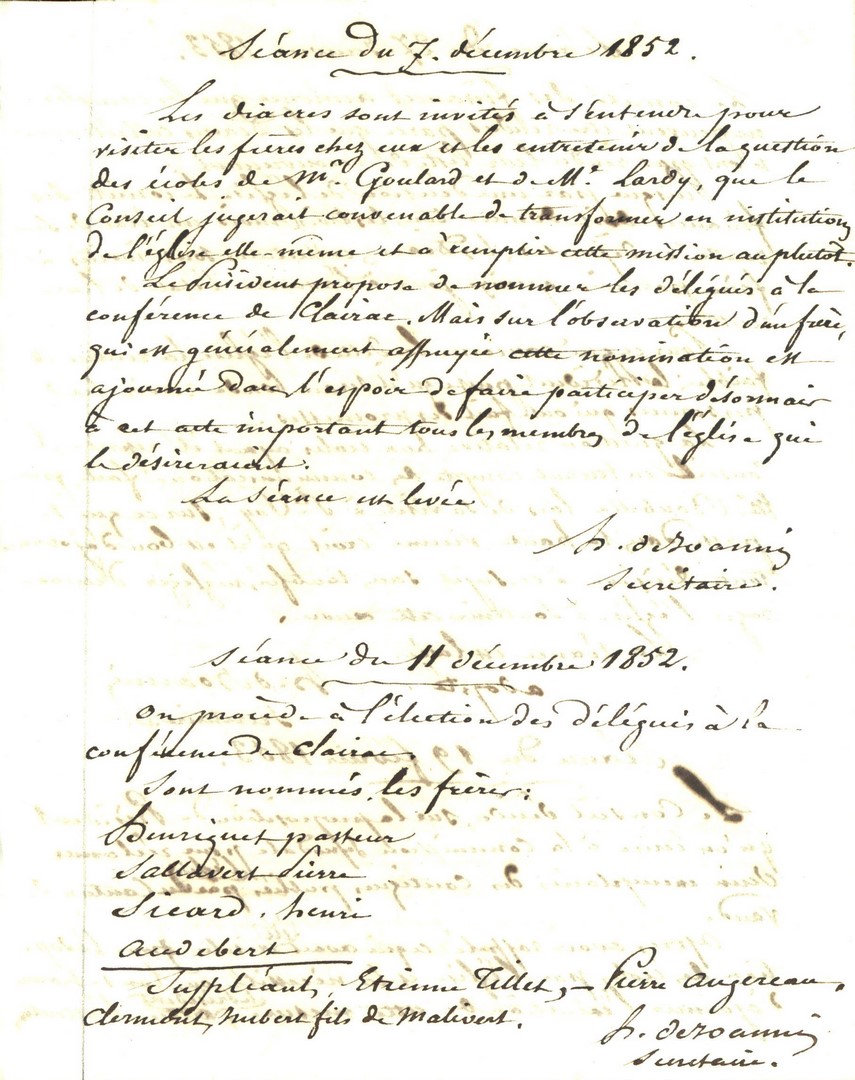 Séance du 7 décembre 1852.
Les diacres sont invités à s'entendre pour
visiter les frères chez eux et les entretenir de la question
des écoles de Mr. Goulard et de Mr. Lardy, que le
Conseil jugerait convenable de transformer en institutions
de l'église elle-même et à remplir cette mission au plutôt.
Le Président propose de nommer les délégués à la
conférence de Clairac. Mais sur l'observation d'un frère,
qui est généralement appuyée cette nomination est
ajournée dans l'espoir de faire participer désormais
à cet acte important tous les membres de l'église qui
le désireraient.
La Séance est levée
h. de Joannis
Secrétaire.
Séance du 11 décembre 1852.
On procède à l'élection des délégués à la
conférence de Clairac.
Sont nommés les frères :
Henriquet pasteur
Sallavert Pierre
Sicard henri
Audebert
Suppléant, Etienne Tillet, - Pierre Augereau,
Clermont, hubert fils de Malivert.
h. de Joannis
Secrétaire.